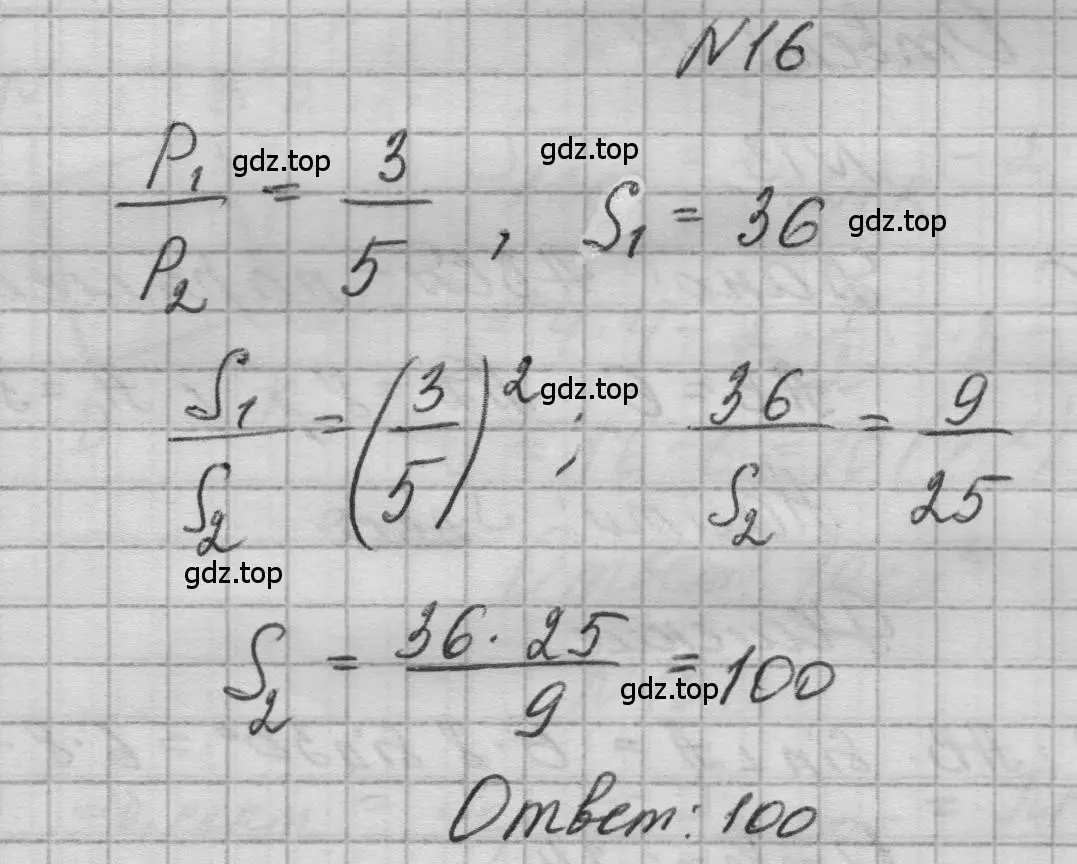 N16
P₁/P₂ = 3/5 , S₁ = 36
S₁/S₂ = (3/5)² ; 36/S₂ = 9/25
S₂ = 36·25/9 = 100
Ответ: 100
gdz.top
gdz.top
gdz.top
gdz.top
gdz.top
gdz.top